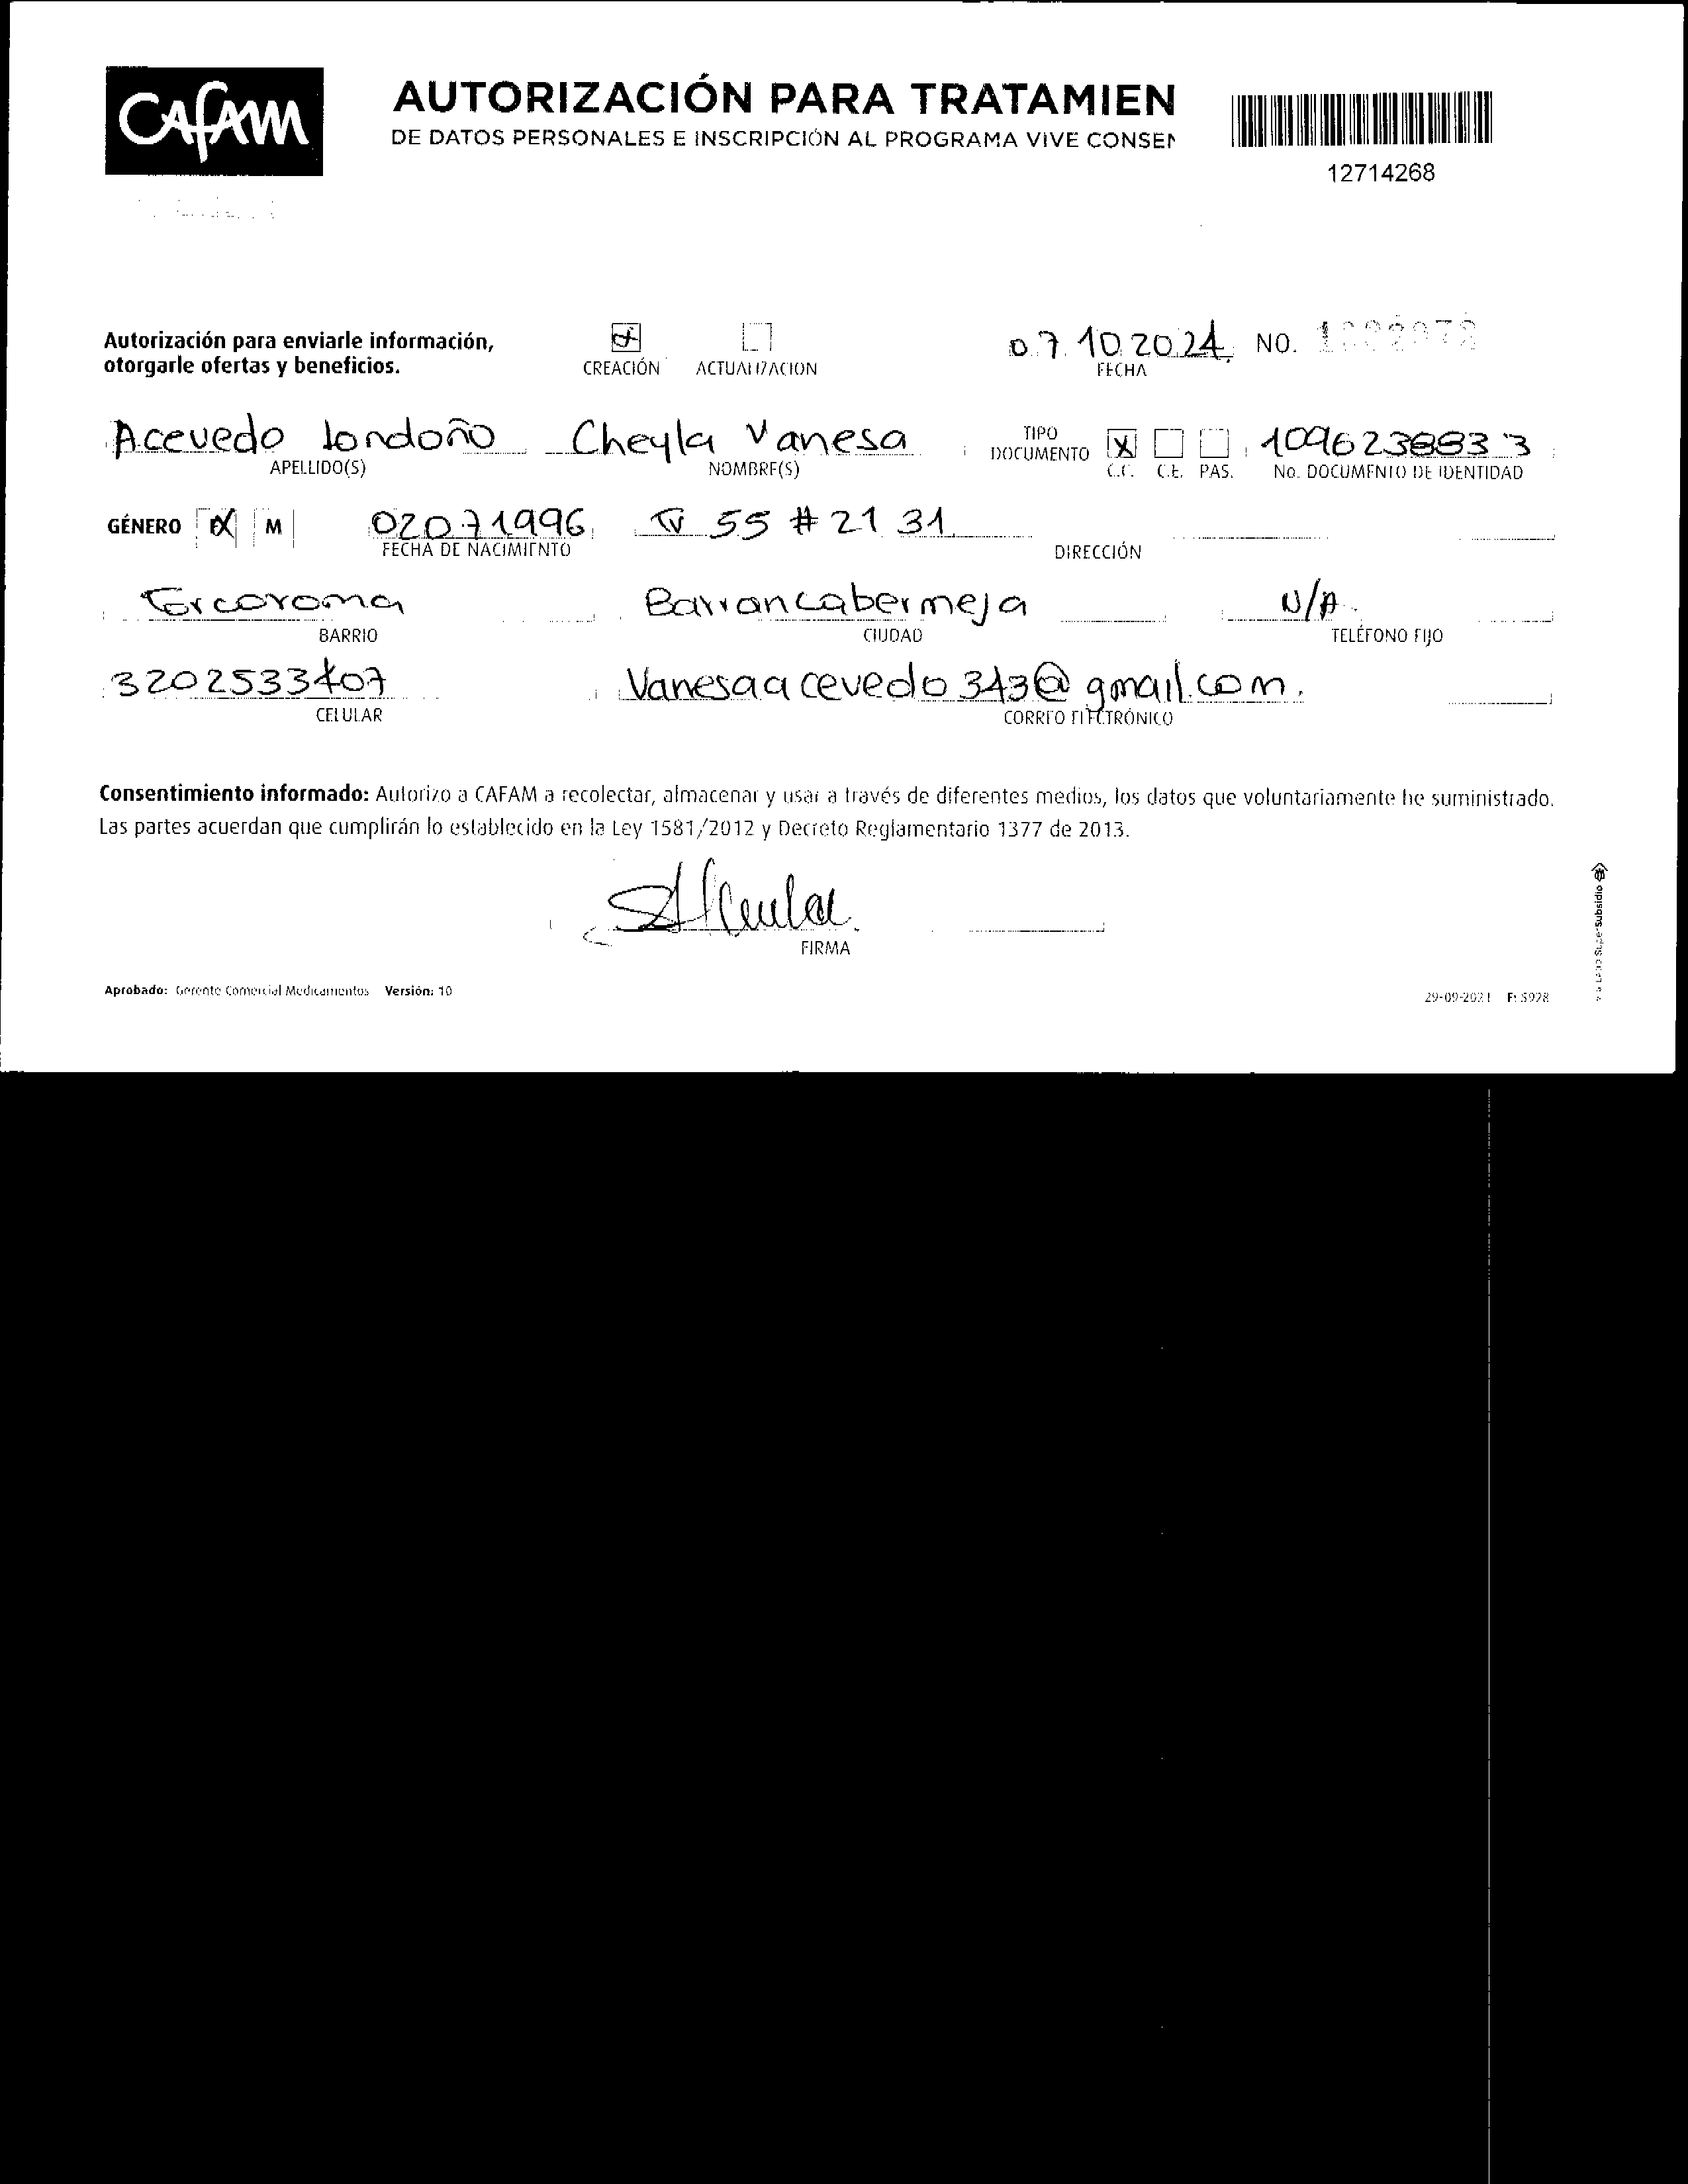 CAFAM
AUTORIZACIÓN PARA TRATAMIEN
DE DATOS PERSONALES E INSCRIPCIÓN AL PROGRAMA VIVE CONSEN
12714268
Autorización para enviarle información,
otorgarle ofertas y beneficios.
CREACIÓN ACTUALIZACION
07 10 2024 NO.
FECHA
Acevedo Londoño Cheyla Vanesa TIPO DOCUMENTO X 1096238833
APELLIDO(S) NOMBRE(S) C.C. C.E. PAS. No. DOCUMENTO DE IDENTIDAD
GÉNERO F X M 02071996 TV 55 # 21 31
FECHA DE NACIMIENTO DIRECCIÓN
Torcoroma Barrancabermeja N/A
BARRIO CIUDAD TELÉFONO FIJO
3202533407 Vanesaacevedo343@gmail.com.
CELULAR CORREO ELECTRÓNICO
Consentimiento informado: Autorizo a CAFAM a recolectar, almacenar y usar a través de diferentes medios, los datos que voluntariamente he suministrado.
Las partes acuerdan que cumplirán lo establecido en la Ley 1581/2012 y Decreto Reglamentario 1377 de 2013.
FIRMA
Aprobado: Gerente Comercial Medicamentos Versión: 10
29-09-2021 F: 5928
SuperSubsidio